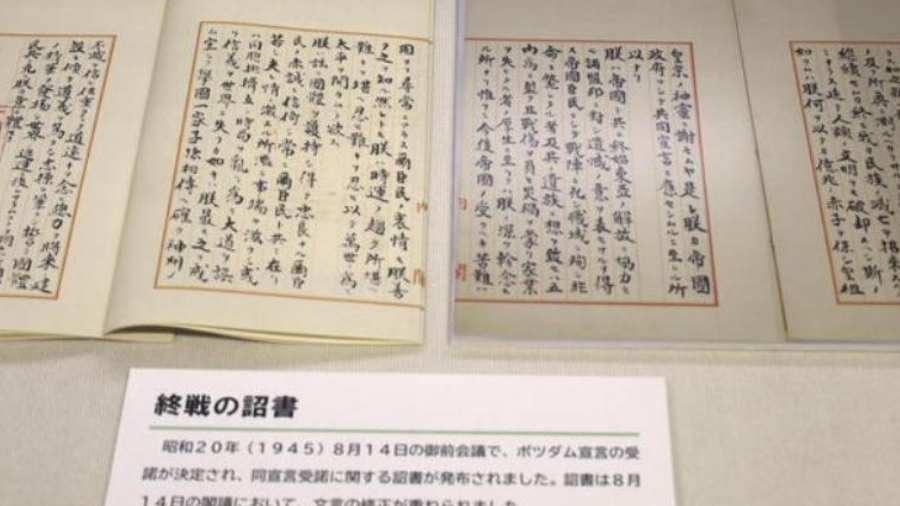 ノ及フ所
繼續セムカ終ニ我カ民族ノ滅亡ヲ招來
ナラス延テ人類ノ文明ヲモ破却スヘシ斯ノ
如クムハ朕何ヲ以テカ億兆ノ赤子ヲ保シ皇祖
皇宗ノ神靈ニ謝セムヤ是レ朕カ帝國
政府ヲシテ共同宣言ニ應セシムルニ至レル所
以ナリ
朕ハ帝國ト共ニ終始東亞ノ解放ニ協力セ
ル諸盟邦ニ對シ遺憾ノ意ヲ表セサルヲ得
ス帝國臣民ニシテ戰陣ニ死シ職域ニ殉シ非
命ニ斃レタル者及其ノ遺族ニ想ヲ致セハ五
内爲ニ裂ク且戰傷ヲ負ヒ災禍ヲ蒙リ家業
ヲ失ヒタル者ノ厚生ニ至リテハ朕ノ深ク軫念ス
ル所ナリ惟フニ今後帝國ノ受クヘキ苦難ハ
固ヨリ尋常ニアラス爾臣民ノ衷情モ朕善
ク之ヲ知ル然レトモ朕ハ時運ノ趨ク所堪ヘ
難キヲ堪ヘ忍ヒ難キヲ忍ヒ以テ萬世ノ爲ニ
太平ヲ開カムト欲ス
朕ハ茲ニ國體ヲ護持シ得テ忠良ナル爾臣
民ノ赤誠ニ信倚シ常ニ爾臣民ト共ニ在リ
若シ夫レ情ノ激スル所濫ニ事端ヲ滋クシ或
ハ同胞排擠互ニ時局ヲ亂リ爲ニ大道ヲ誤
リ信義ヲ世界ニ失フカ如キハ朕最モ之ヲ戒
ム宜シク擧國一家子孫相傳ヘ確ク神州ノ
不滅ヲ信シ任重クシテ道遠キヲ念ヒ總力ヲ將來ノ建
設ニ傾ケ道義ヲ篤クシ志操ヲ鞏クシ誓テ國體
ノ精華ヲ發揚シ世界ノ進運ニ後レサラムコトヲ期
終戦の詔書
昭和20年（1945）8月14日の御前会議で、ポツダム宣言の受
諾が決定され、同宣言受諾に関する詔書が発布されました。詔書は8月
14日の閣議において、文言の修正が重ねられました